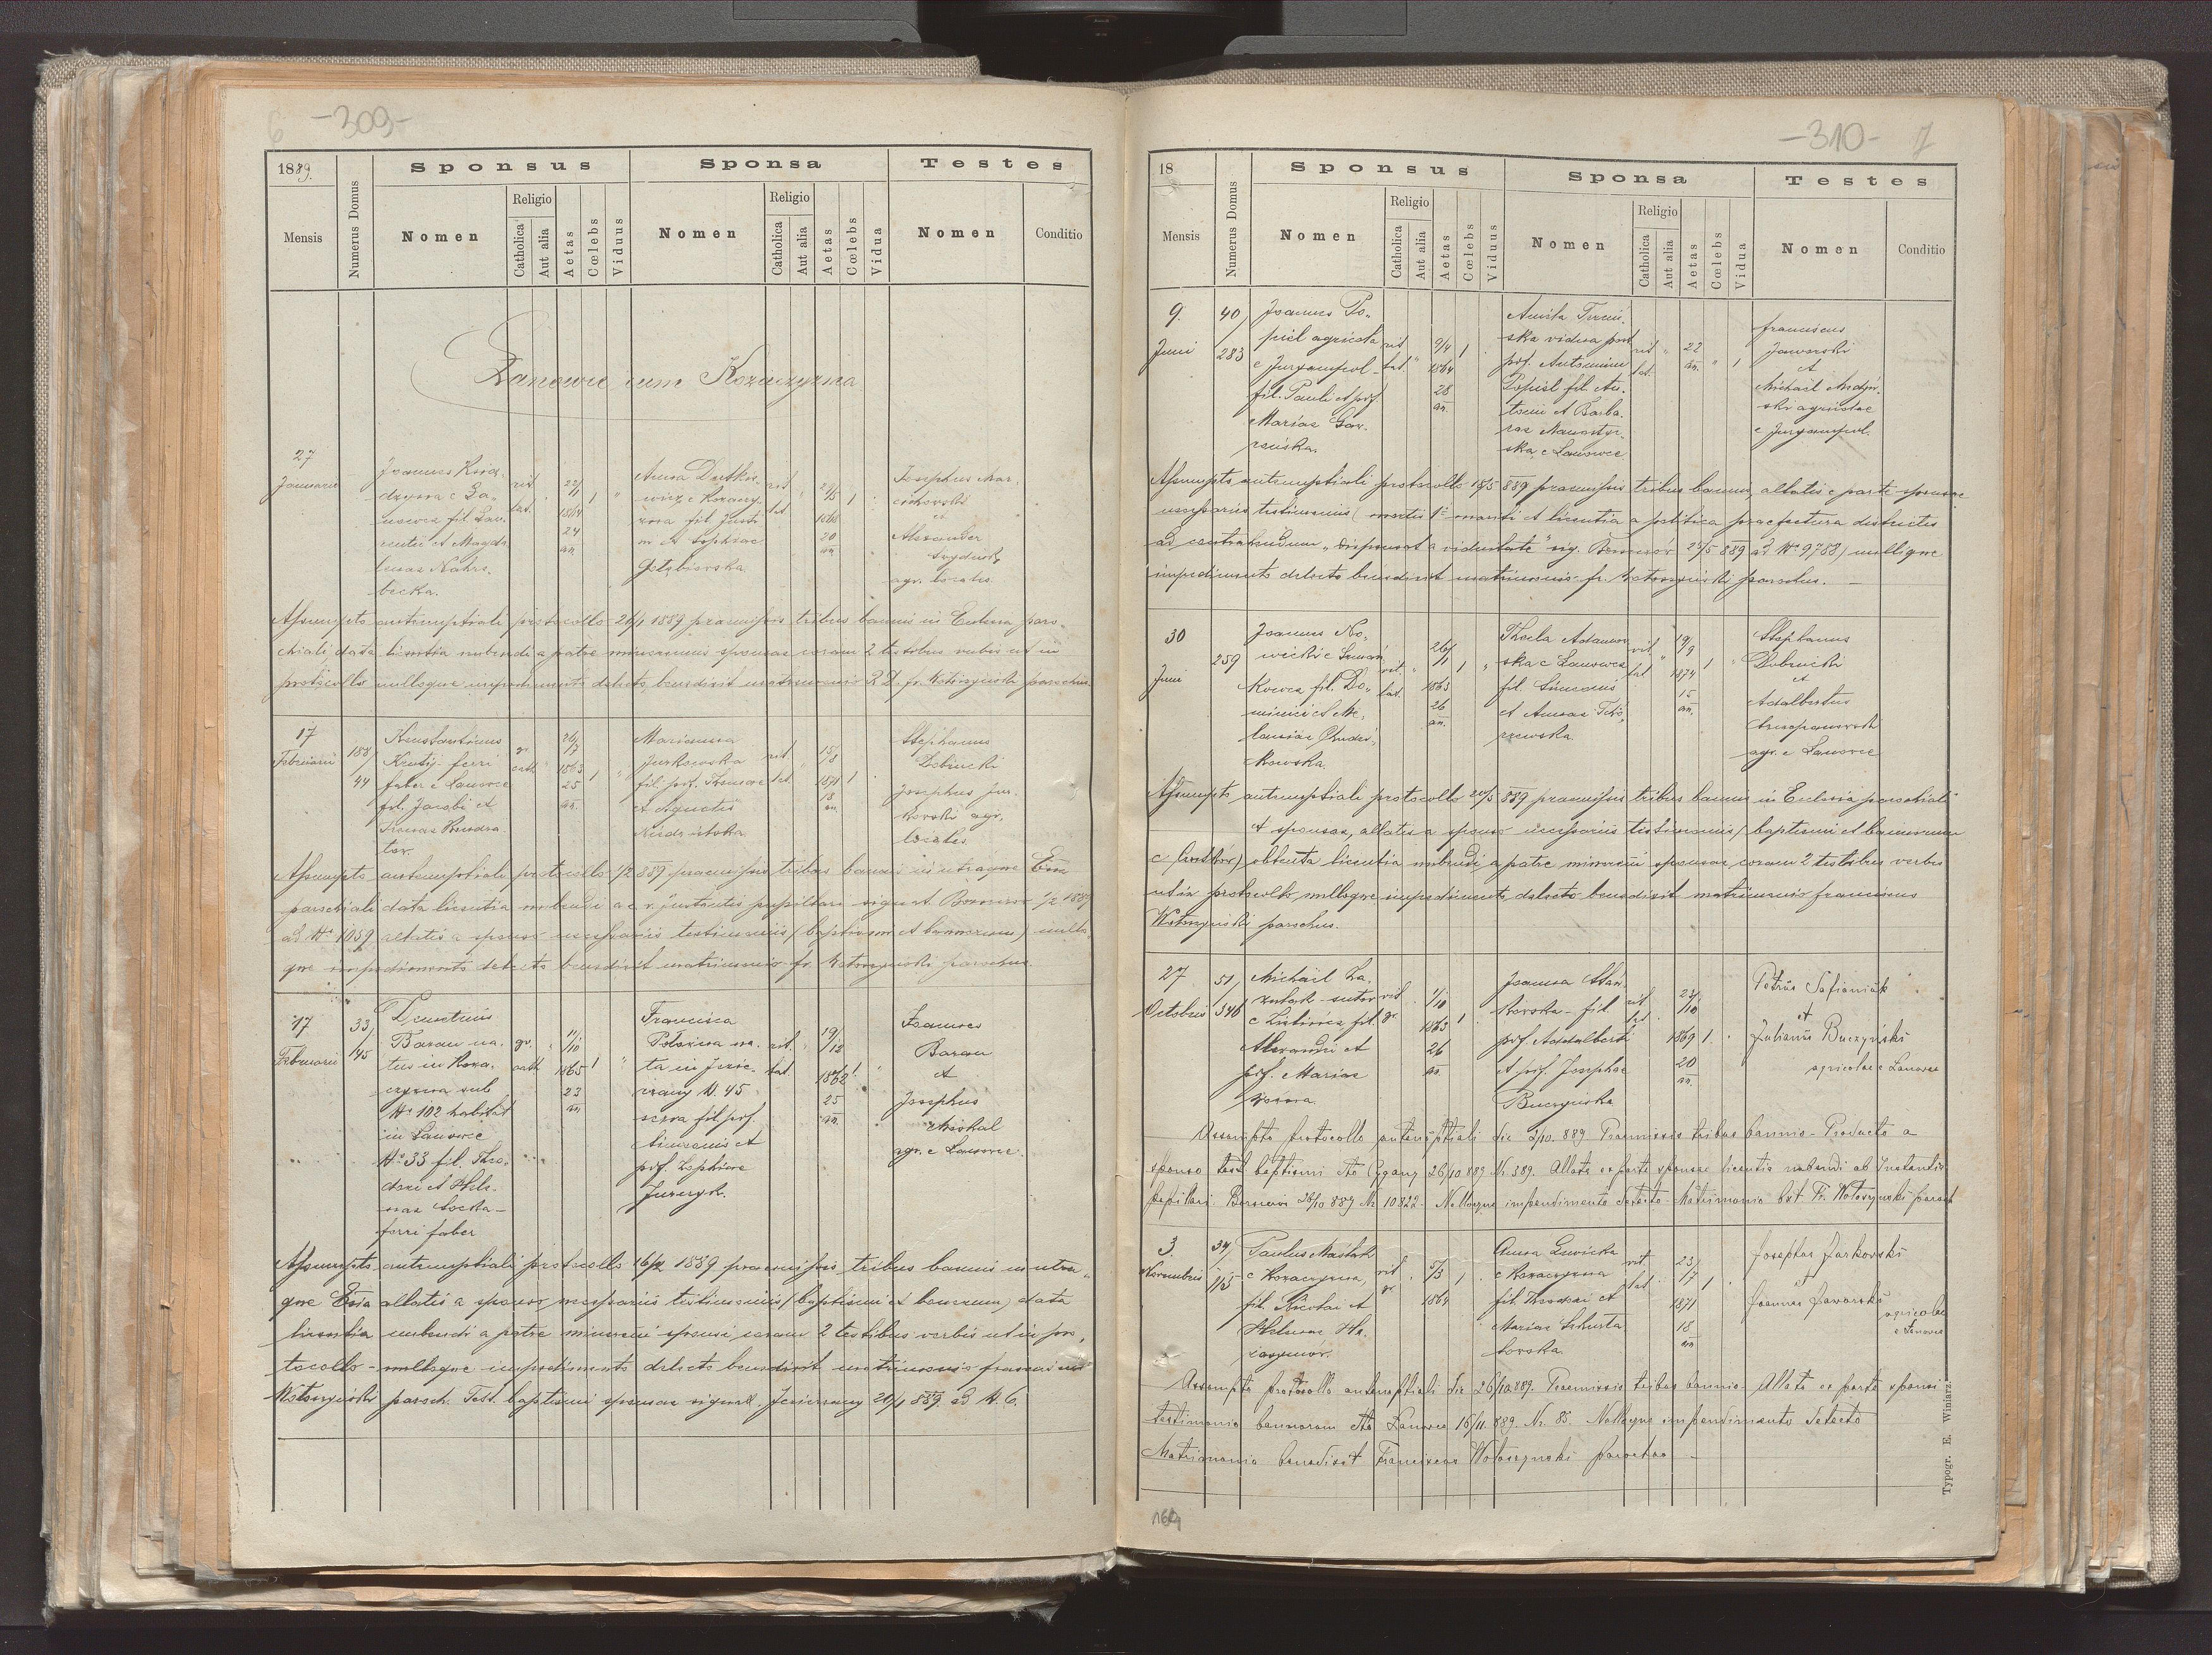 6 -309-
1889.
Sponsus
Sponsa
Testes
Mensis
Numerus Domus
Nomen
Religio
Catholica
Aut alia
Aetas
Cœlebs
Viduus
Nomen
Religio
Catholica
Aut alia
Aetas
Cœlebs
Vidua
Nomen
Conditio
Łanowce cum Kozaczyzna
27
Januarii
Joannes
e Ła-
nowce fil. Lau-
rentii et Magda-
lenae
becka.
rit.
lat.
22/1
1864
24
an.
1
Anna Dutkie-
wicz e Kozaczy-
zna fil. Justi-
ni et Sophiae
Gołębiowska.
rit.
lat.
1868
20
an.
1
Josephus Mar-
cinkowski
et
Alexander
agr. locales
Assumpto antenuptiali protocollo 26/1 1889 praemissis tribus bannis in Ecclesia paro-
chiali, data licentia nubendi a patre minorennis sponsae coram 2 testibus verbis ut in
protocollo nulloque impedimento detecto benedixit matrimonio R.D. fr. Wołoszyński parochus
17
Februarii
188/
44
Konstantinus
ferri
faber e Łanowce
fil. Jacobi et
tor.
gr.
cath
1863
25
an.
1
Marianna
Jurkowska
fil. pof. Thomae
et Agnetis
rit.
lat.
15/8
1871
18
an.
1
Stephanus
Dobrucki
Josephus Jur-
kowski agr.
locales.
Assumpto antenuptiali protocollo 1/2 889 praemissis tribus bannis in utraque Ecca
parochiali data licentia nubendi a c. r. instantia pupillari signat. Borszczów 1/2 1889
ad Nr 1059, allatis a sponso necessariis testimoniis (baptismi et bannorum) nullo-
que impedimento detecto benedixit matrimonio fr. Wołoszyński parochus.
17
Februarii
33/
145
Demetrius
Baran na-
tus in Koza-
czyzna sub
Nr 102 habitat
in Łanowce
Nr 33 fil. Theo-
dori et Hele-
nae Socka -
ferri faber
gr.
cath
11/10
1865
23
an
1
Francisca
na-
ta in Jezie-
rzany N. 45
fil. pof.
Simeonis et
pof. Sophiae
Jurczyk.
rit.
lat.
19/12
1862
25
an.
1
Joannes
Baran
et
Josephus
Michal
agr. e Łanowce.
Assumpto antenuptiali protocollo 16/2 1889 praemissis tribus bannis in utra-
que Ecca allatis a sponso necessariis testimoniis (baptismi et bannorum) data
licentia nubendi a patre minorenni sponsi coram 2 testibus verbis ut in pro-
tocollo - nulloque impedimento detecto benedixit matrimonio franciscus
Wołoszyński paroch. Test. baptismi sponsae signat. Jezierzany 20/1 889. ad N. 6.
-310- 7
18
Sponsus
Sponsa
Testes
Mensis
Numerus Domus
Nomen
Religio
Catholica
Aut alia
Aetas
Cœlebs
Viduus
Nomen
Religio
Catholica
Aut alia
Aetas
Cœlebs
Vidua
Nomen
Conditio
9.
Juni
40/
283
Joannes Po-
piel agricola
e Jurjampol -
fil. Pauli et pof.
Mariae
rit
lat.
9/4
1864
28
an.
1
ska vidua post
pof. Antonium
Popiel fil. An-
tonii et Barba-
rae Monaster-
ska e Łanowce
rit
lat.
22
an.
1
franciscus
Jaworski
et
Michael
ski agricolae
e Jurjampol.
Assumpto antenuptiali protocollo 18/5 889 praemissis tribus bannis, allatis e parte sponsae
necessariis testimoniis (mortis 1i mariti et licentia a politica praefectura districtus
ad contrahendum „dispensat a viduitate" sig. Borszczów 24/5 889 ad Nr 9788) nulloque
impedimento detecto benedixit matrimonio fr. Wołoszyński parochus. -
30
Juni
259
Joannes No-
wicki e
fil. Do-
minici et Me-
laniae
kowska.
rit.
lat.
26/1
1863
26
an.
1
Thecla Adamow-
ska e Łanowce
fil. Simeonis
et Annae
rzewska.
rit
lat
19/9
1874
15
an.
1
Stephanus
Dobrucki
et
Adalbertus
agr. e Łanowce
Assumpto antenuptiali protocollo 20/5 889 praemissis tribus bannis in Ecclesia parochiali
et sponsae, allatis a sponso necessariis testimoniis (baptismi et bannorum
e ) obtenta licentia nubendi a patre minorenni sponsae coram 2 testibus verbis
ut in protocollo nulloque impedimento detecto benedixit matrimonio franciscus
Wołoszyński parochus.
27
Octobris
51/
346
Michael Ła-
zubak - sutor
fil.
Alexandri et
pof. Mariae
rit
gr.
1/10
1863
26
an.
1
Joanna Stań-
kowska - fil.
pof. Adalberti
et pof. Josephae
Buczyńska
rit
lat.
23/10
1869
20
an.
1.
Petrus Safianiuk
et
Julianus Buczyński
agricolae e Łanowce
Assumpto protocollo antenuptiali die 2/10. 889 Praemissis tribus bannis - Producto a
sponso test. baptismi dto Cygany 26/10 889 Nr. 389. Allata ex parte sponsae licentia nubendi ab Instantia
pupillari. Borszczów 26/10 889 Nr 10822. Nulloque impendimento detecto - Matrimonio bxt Fr. Wołoszyński paroch
3.
Novembris
34/
113
Paulus Maślak
e Kozaczyzna,
fil. Nicolai et
Helenae
rit
gr.
5/3
1864
1
Anna Lewicka
e Kozaczyzna
fil. Theodori et
Mariae
towska.
rit.
lat.
23/7
1871
18
an
1
Josephus Jarkowski
Joannes Jaworski
agricolae
e Łanowce
Assumpto protocollo antenuptiali die 26/10 889. Praemissis tribus bannis - Allato ex parte sponsi
testimonio bannorum dto Łanowce 15/11. 889. Nr. 85. Nulloque impendimento detecto
Matrimonio benedixit Franciscus Wołoszyński parochus -
Typogr. E. Winiarz
164